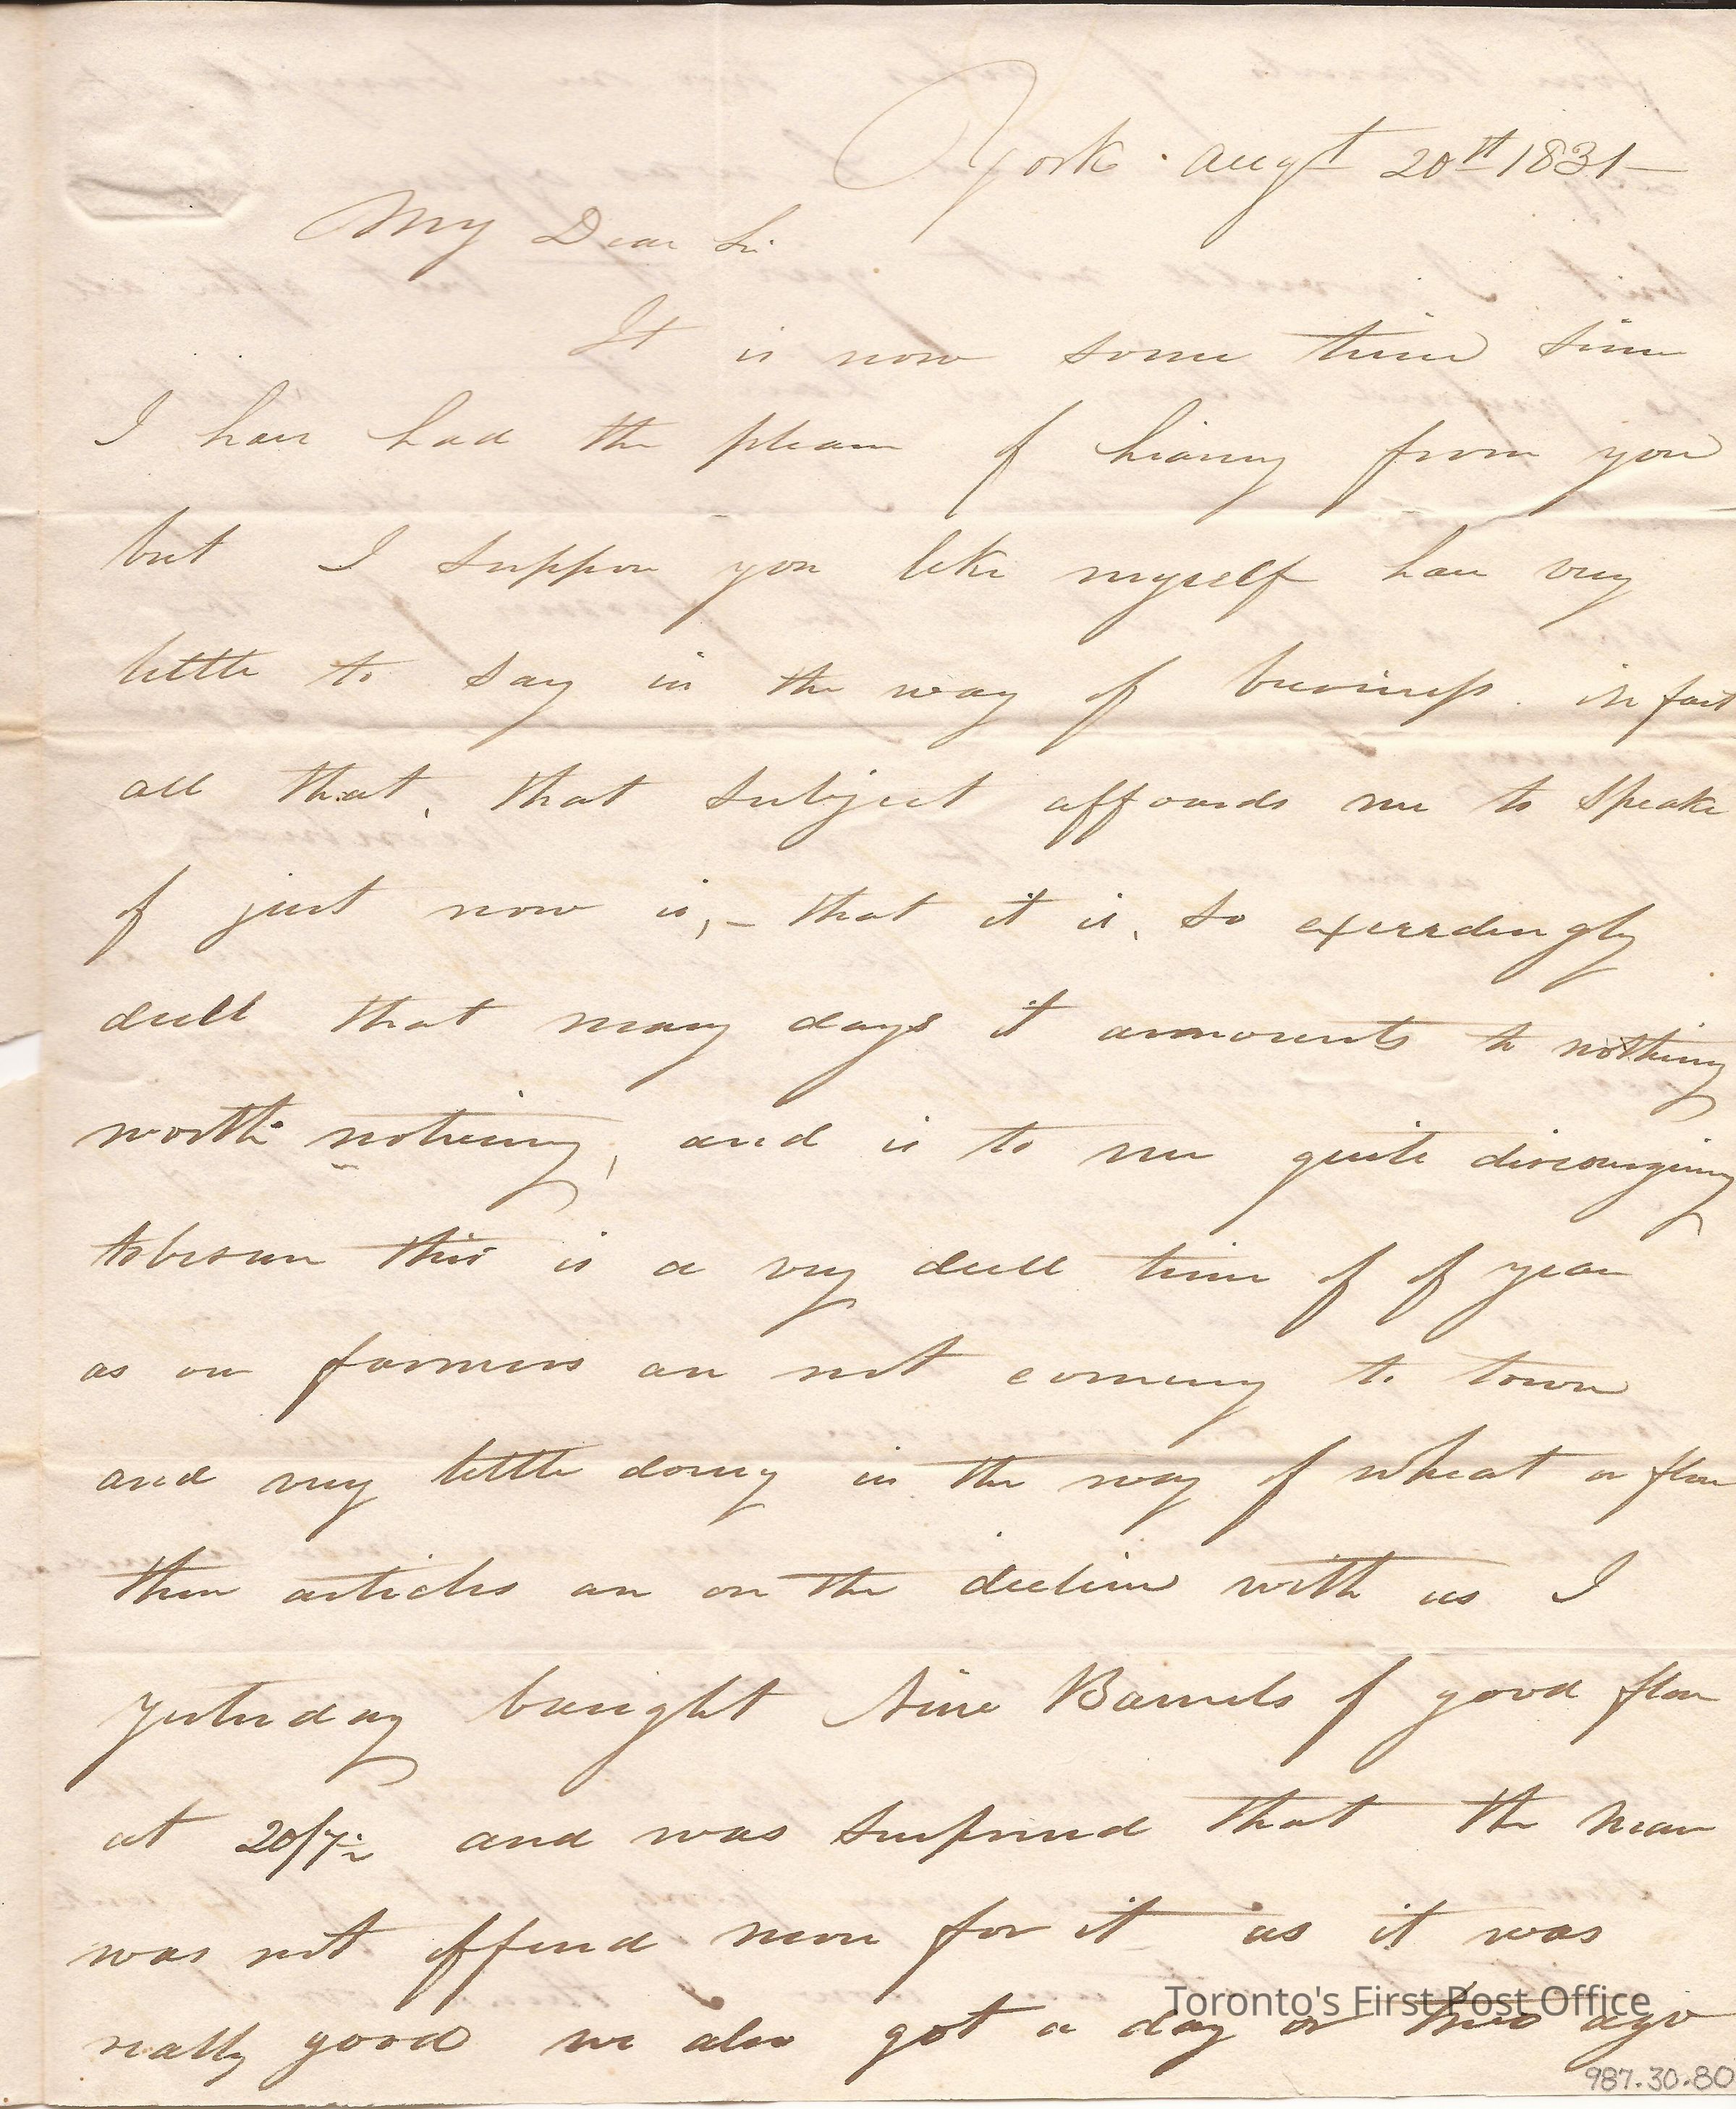 York. Augt 20th 1831 –
My Dear Sir
It is now some time since
I have had the pleasure of hearing from you
but I suppose you like myself have very
little to say in the way of business. in fact
all that, that subject affords me to speake
of just now is, – that it is, so exceedingly
dull that many days it ammounts to nothing
worth nothing, and is to me quite discouraging
to be sure this is a very dull time of of year
as our farmers are not coming to town
and very little doing in the way of wheat or flour
these articles are on the decline with us I
yesterday bought Nine Barrels of good flour
at 20/7½ and was surprised that the man
was not offered more for it as it was
really good we also got a day or two ago
Toronto's First Post Office
987.30.80